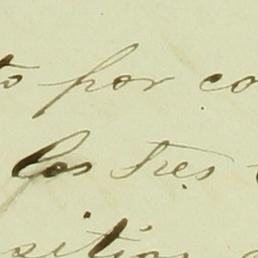 to por co
los tres
sition